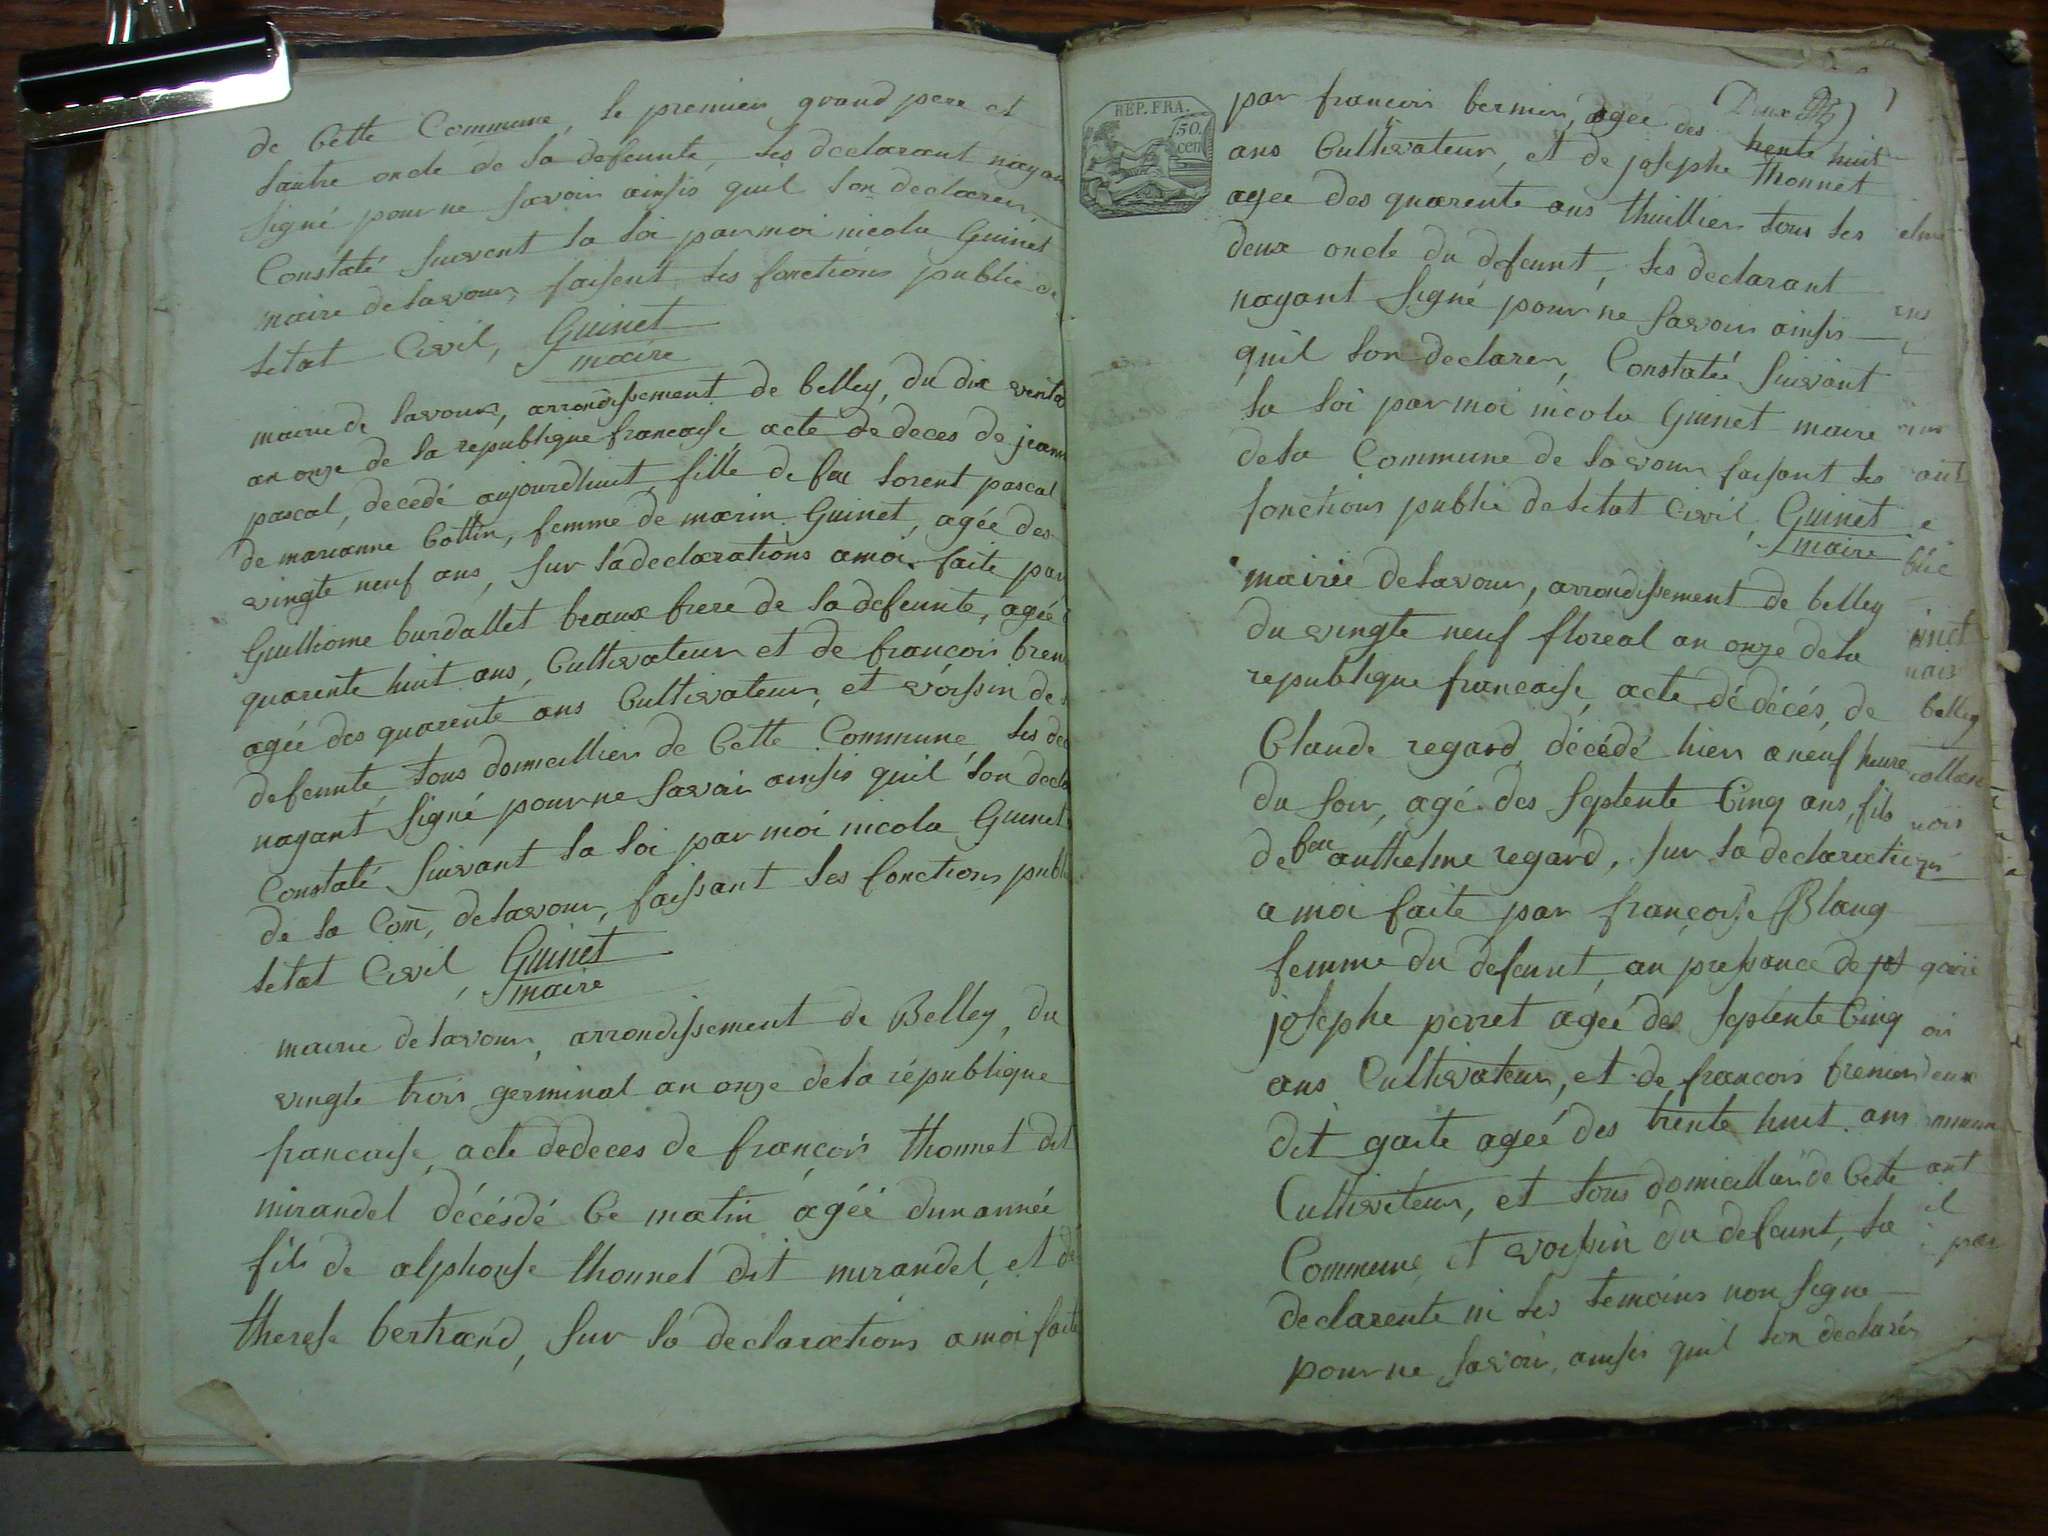 de Cette Commune, le premier grand pere et
lautre oncle de la defeunte, les declarant nayan
signé pour ne savoir ainsis quil lon declarer,
Constaté suivent la loi par moi nicola Guinet
maire de lavour, faisent les fonctions public de
letat Civil, Guinet
maire
mairie de lavour, arrondissement de belley, du dix vento
an onze de la republique francaise, acte de deces de jeann
pascal, decedé aujourdhuit, fille de feu lorent pascal
de marianne Cottin, femme de marin Guinet, agée des
vingte neuf ans, sur la declarations a moi faite par
Guilliome burdallet beaux frere de la defeunte, agée
quarente huit ans, Cultivateur et de francois fren
agée des quarente ans Cultivateur, et voissin de
defeunte, tous domicillier de Cette Commune, les dec
nayant signé pour ne savoir ainsis quil lon decla
Constaté suivant la loi par moi nicola Guinet
de la Com, de lavour, faissant les fonctions publi
letat Civil, Guinet
maire
mairie de lavour, arrondissement de Belley, du
vingte trois germinal an onze de la république
francaise, acte de deces de françois thonnet dit
mirandel décésdé Ce matin agéé dun année
fils de alphonse thonnet dit mirandel, et de
therese bertrand, sur la declarations a moi faite
REP. FRA.
50
cen
Deux
par francois bernier, agee des trente huit
ans Cultivateur, et de josephe thonnet
agee des quarente ans thuillier tous les
deux oncle du defeunt, les declarant
nayant signé pour ne savoir ainsis
quil lon declarer, Constatée suivant
la loi par moi nicola Guinet maire
de la Commune de lavour faisant les
fonctions public de letat Civil, Guinet
maire
mairie de lavour, arrondissement de belley
du vingte neuf floreal an onze de la
republique francaise, acte de décés, de
Claude regard, décédé hier a neuf heure
du soir, agé des septente Cinq ans, fils
de feu anthelme regard, sur la declaration
a moi faite par françoise Blanq
femme du defeunt, an pressance de
josephe perret agée des septente Cinq
ans Cultivateur, et de francois frenier
dit gaite agée des trente huit ans
Cultivateur, et tous domicillier de Cette
Commune, et voissin du defeunt, la
declarente ni les temoins non signe
pour ne savoir, ainsis quil lon declarer
belley